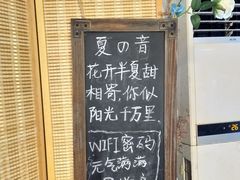 夏の音
花开半夏甜
相寄,你似
阳光十万里.
WIFI密码
元气满满
26